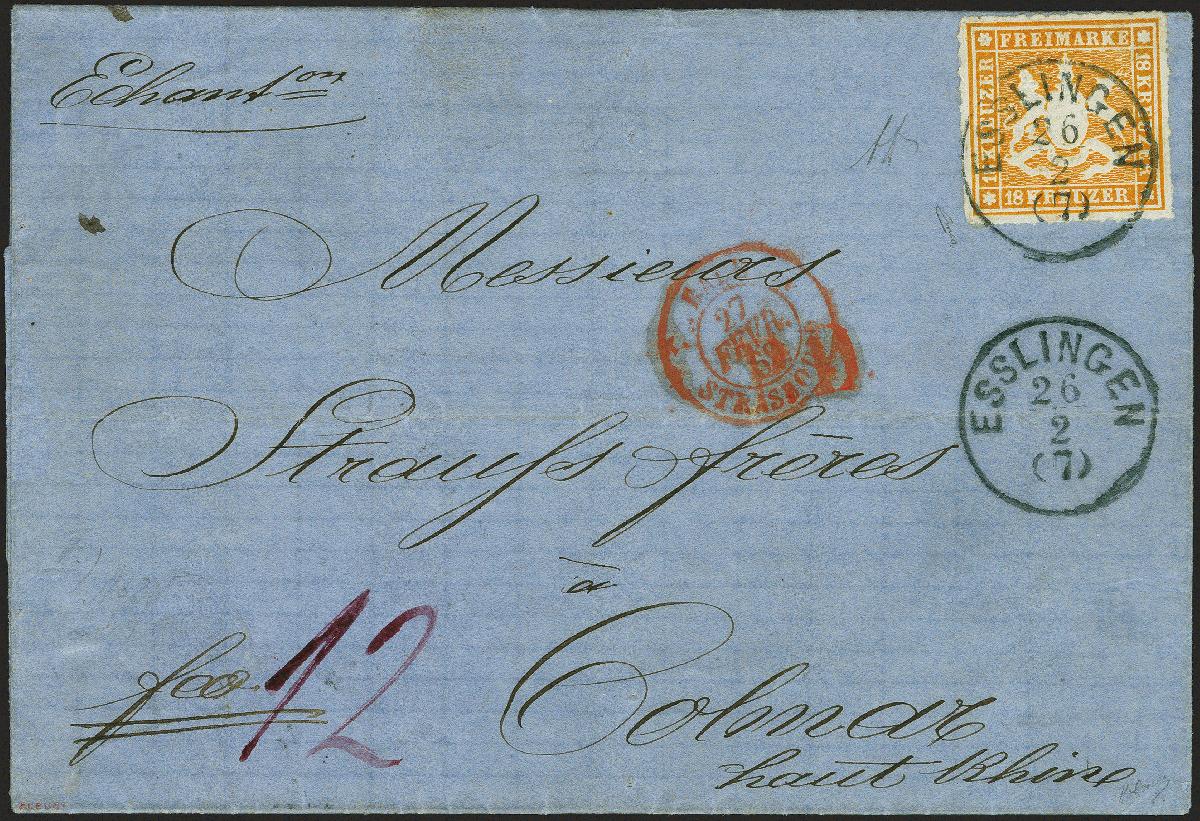 Echant^on
FREIMARKE
18 KREUZER
18 KREUZER
ESSLINGEN
26
2
(7)
Messieurs
27
FEVR.
STRASBOURG
Strauss frères
ESSLINGEN
26
2
(7)
à
fco
12
Colmar
haut Rhin